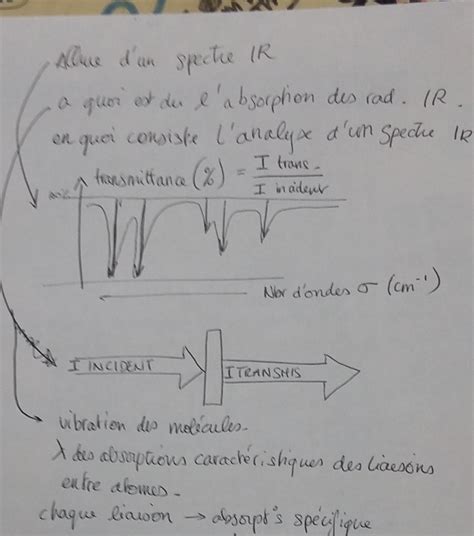 Allure d'un spectre IR
a quoi est du l'absorption des rad. IR.
en quoi consiste l'analyse d'un spectre IR
transmittance (%) = I trans. / I incident
Nbr d'ondes σ (cm⁻¹)
I INCIDENT
I TRANSMIS
vibration des molécules.
λ des absorptions caractéristiques des liaisons
entre atomes.
chaque liaison → absorpt°s spécifique